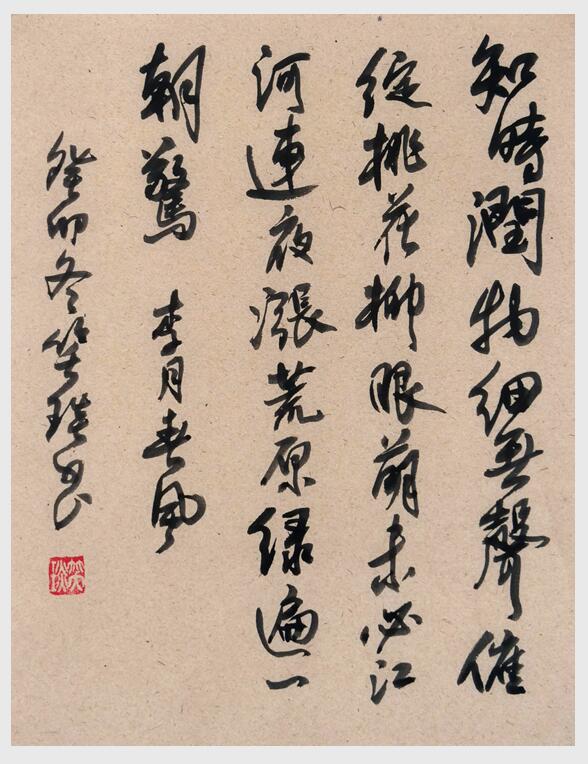 知時潤物細無聲催
綻桃花柳眼萌未必江
河連夜漲荒原緑遍一
朝驚 李月春風
癸卯冬